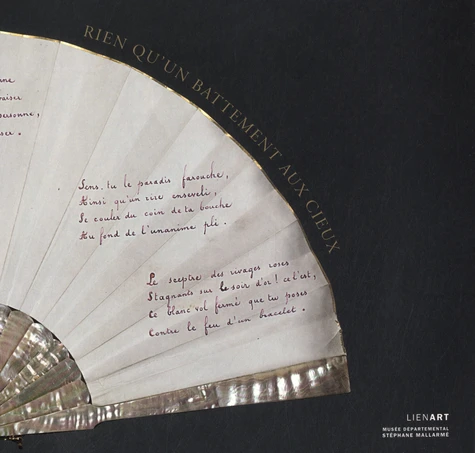 RIEN QU'UN BATTEMENT AUX CIEUX
aiser
personne,
ser.
Sens-tu le paradis farouche,
Ainsi qu'un rire enseveli,
Se couler du coin de ta bouche
Au fond de l'unanime pli.
Le sceptre des rivages roses
Stagnants sur le soir d'or ! ce l'est,
Ce blanc vol fermé que tu poses
Contre le feu d'un bracelet.
LIENART
MUSÉE DÉPARTEMENTAL
STÉPHANE MALLARMÉ